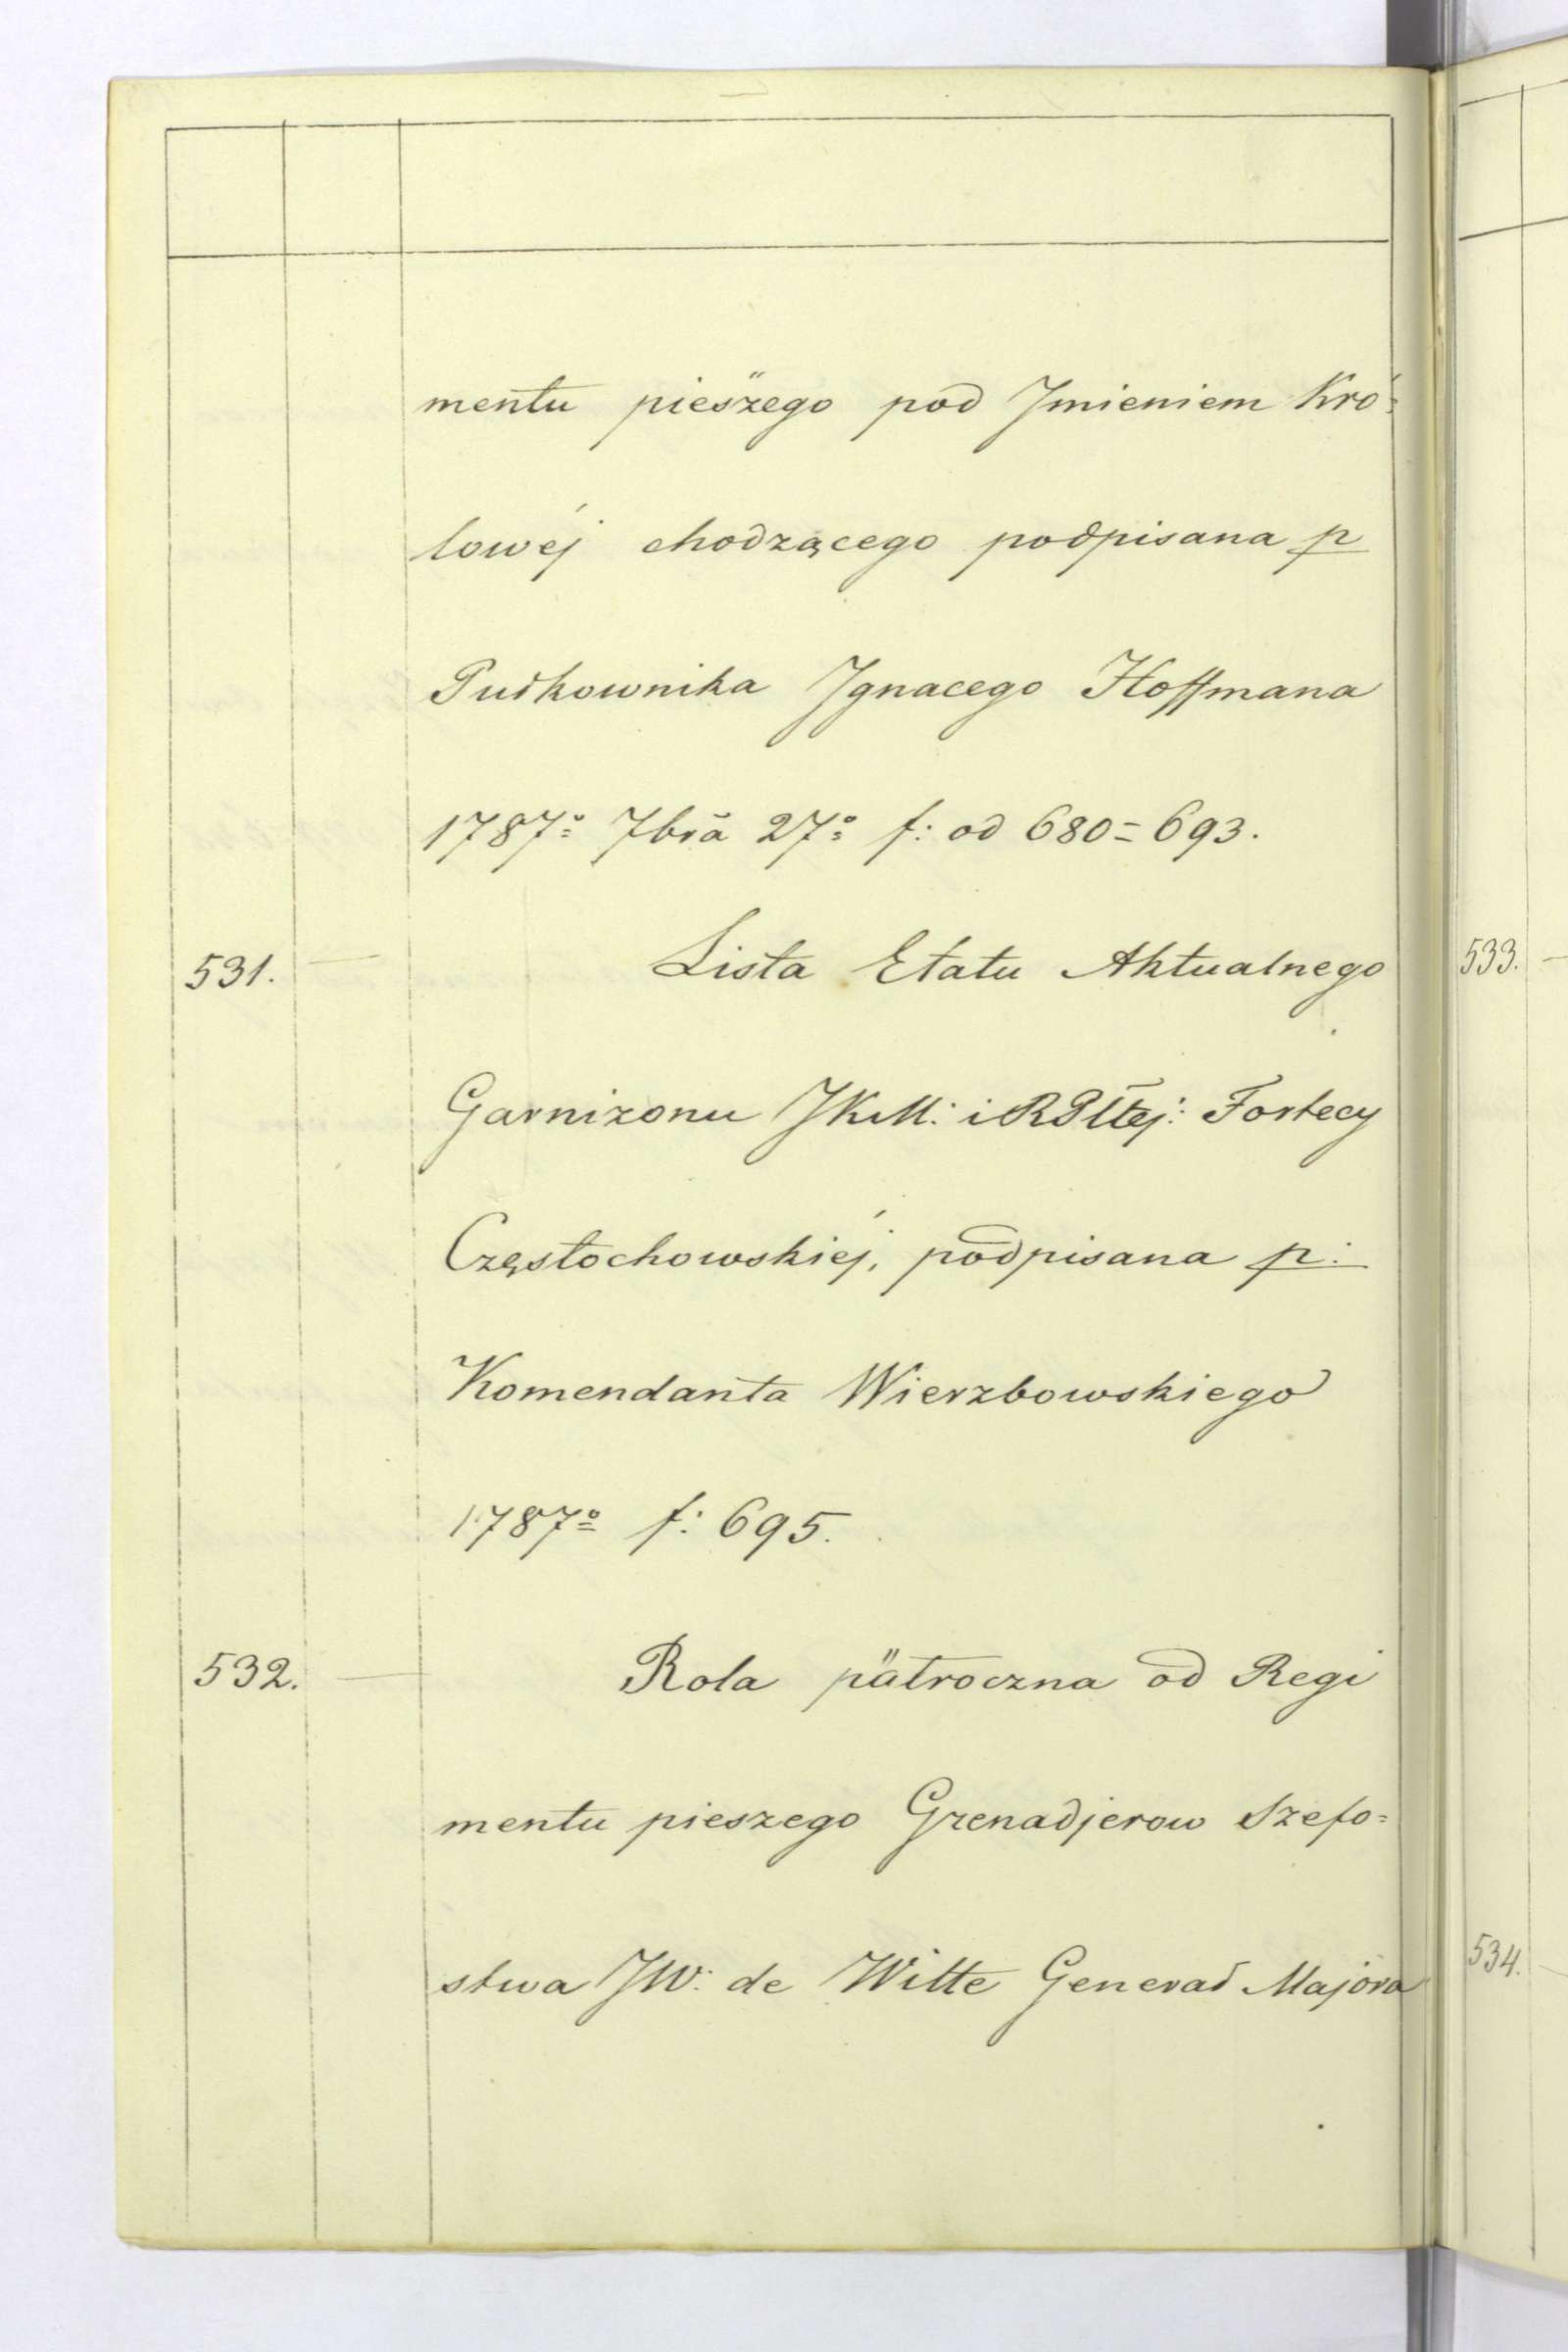 mentu pieszego pod Jmieniem Kró=
lowéj chodzącego podpisana p
Pułkownika Jgnacego Hoffmana
1787º 7bra 27º f: od 680=693.
531. Lista Etatu Aktualnego
Garnizonu JKM: i RPltej: Fortecy
Częstochowskiéj, podpisana p:
Komendanta Wierzbowskiego
1787º f: 695.
532. Rola pułroczna od Regi
mentu pieszego Grenadjerow Szefo=
stwa JW: de Witte Generał Majora
533.
534.